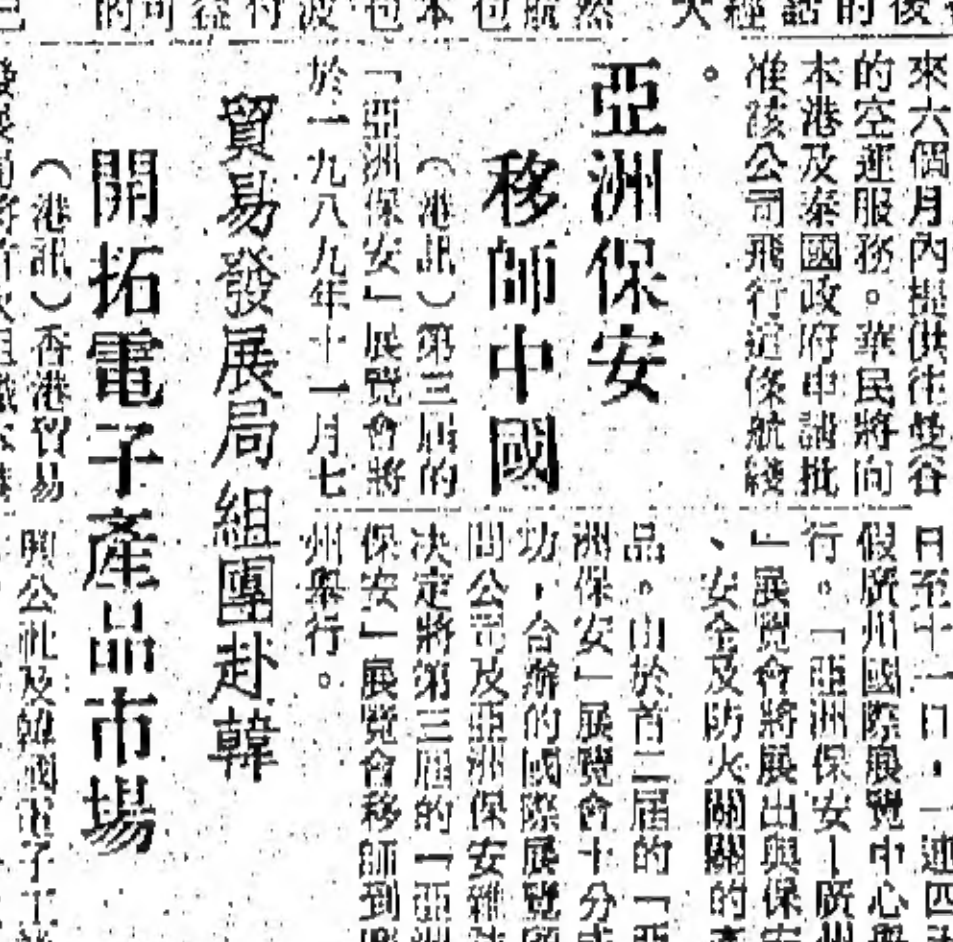 來六個月內提供往曼谷
的空運服務。華民將向
本港及泰國政府申請批
准該公司飛行這條航綫
。
亞洲保安
移師中國
（港訊）第三屆的
「亞洲保安」展覽會將
於一九八九年十一月七
日至十一日，一連四
假廣州國際展覽中心舉
行。「亞洲保安—廣州
」展覽會將展出與保安
、安全及防火關關的產
品。由於首二屆的「亞
洲保安」展覽會十分成
功，合辦的國際展覽顧
問公司及亞洲保安雜誌
決定將第三屆的「亞洲
保安」展覽會移師到廣
州舉行。
貿易發展局組團赴韓
開拓電子產品市場
（港訊）香港貿易
發展局將首次組織本港
興公社及韓國電子工